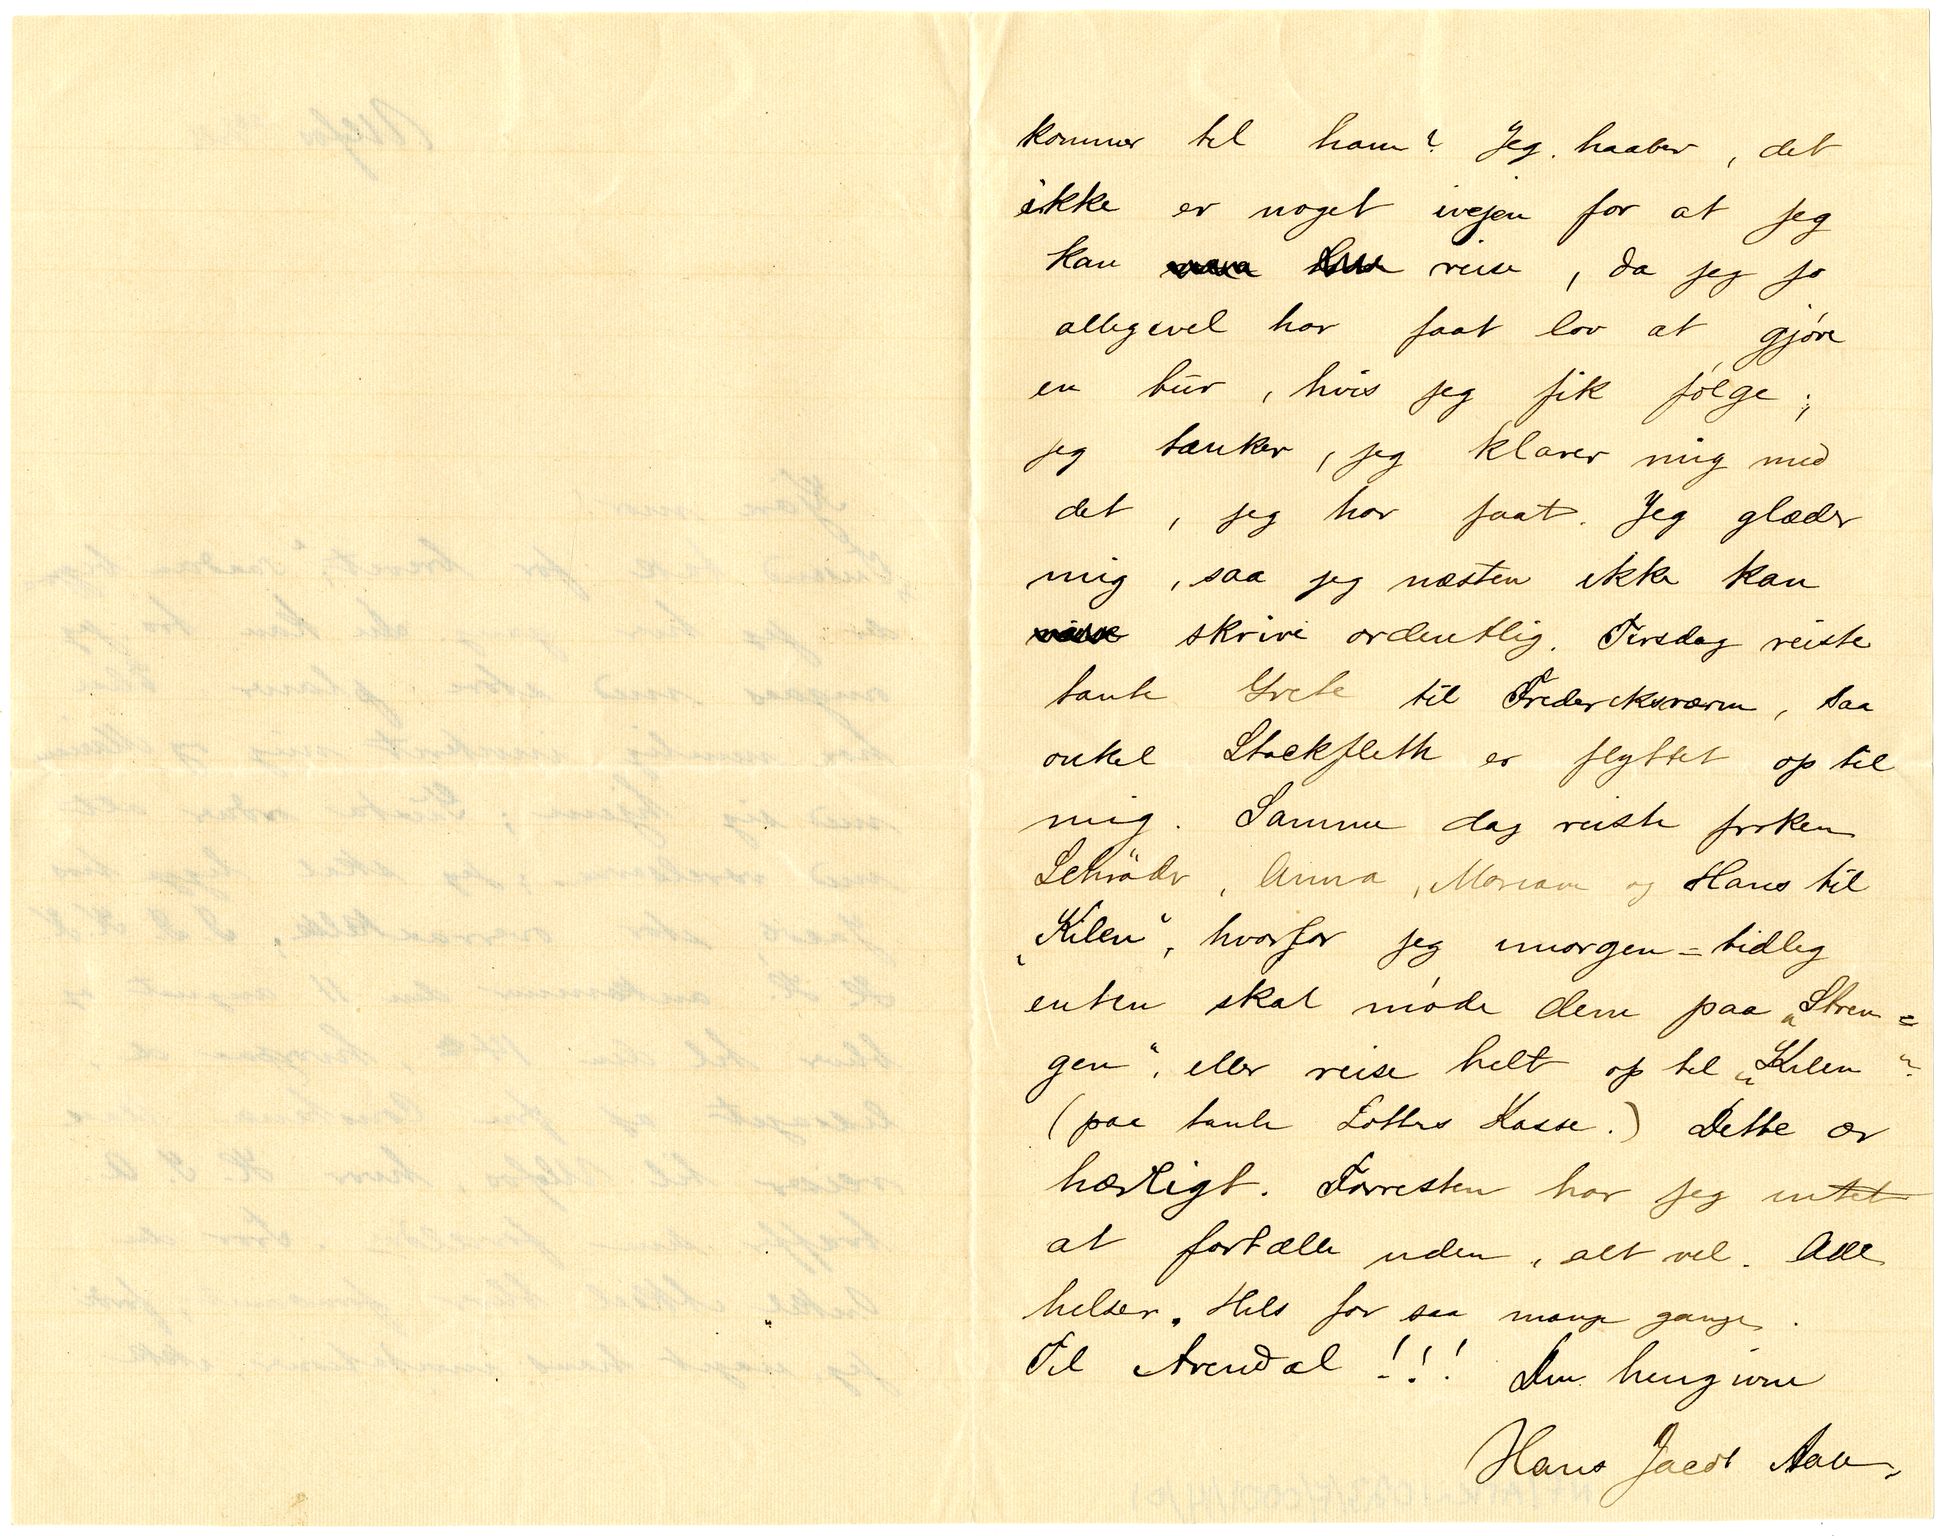 kommer til ham? Jeg haaber, det
ikke er noget ivejen for at jeg
kan reise, da jeg jo
alligevel har faat lov at gjøre
en tur, hvis jeg fik følge;
jeg tænker, jeg klarer mig med
det, jeg har faat. Jeg glæder
mig, saa jeg næsten ikke kan
skrive ordentlig. Tirsdag reiste
tante Grete til Frederiksværn, saa
onkel Stockfleth er flyttet op til
mig. Samme dag reiste frøken
Schröder, Anna, Mariane og Hans til
„Kilen“, hvorfor jeg imorgen=tidlig
enten skal møde dem paa „Stren=
gen“, eller reise helt op til „Kilen“
(paa tante Lottes Kasse.) Dette er
hærligt. Forresten har jeg intet
at fortælle uden, alt vel. Alle
helser. Hels far saa mange gange.
Til Arendal!!! Din hengivne
Hans Jacob Aall.